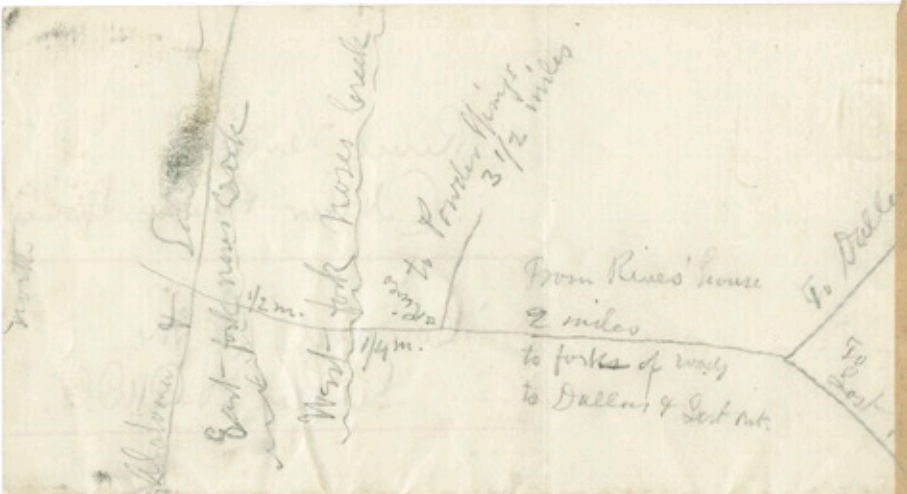 north
East fork noses creek
1/2 m.
West fork Noses Creek
1/4 m.
to Powder Springs
3 1/2 miles
From Rives' house
2 miles
to forks of roads
to Dallas & Lost mt.
To Dallas
To Lost